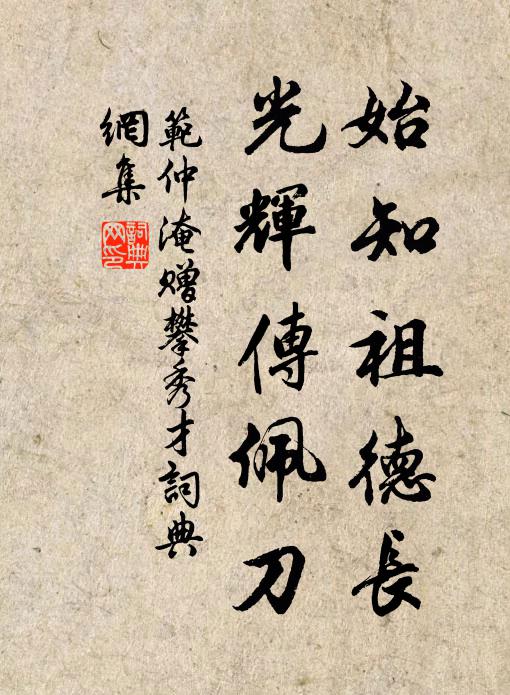 始知祖德長
光輝傳佩刀
範仲淹贈攀秀才詞典
網集
詞典
网印